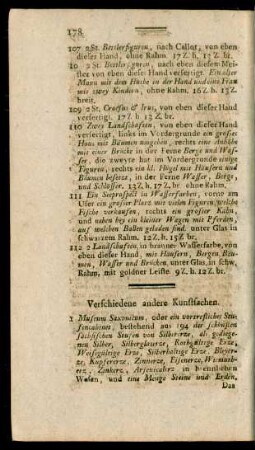 178
107 2 St. Bettlerfiguren, nach Callot, von eben
dieser Hand, ohne Rahm. 17 Z. h, 12 Z. br.
10 2 St. Bettlerfiguren, nach eben diesen Mei-
ster von eben dieser Hand verfertiget. Ein alter
Mann mit dem Huthe in der Hand und eine Frau
mit zwey Kindern, ohne Rahm. 16 Z. h. 13 Z.
breit.
109 2 St. Croesus & Irus, von eben dieser Hand
verfertigt. 17 Z. h. 13 Z. br.
110 Zwey Landschaften, von eben dieser Hand
verfertigt, links im Vordergrunde ein großes
Haus mit Bäumen umgeben, rechts eine Anhöhe
mit einer Brücke in der Ferne Berge und Was-
ser, die zweyte hat im Vordergrunde einige
Figuren, rechts ein kl. Hügel mit Häusern und
Bäumen besetzt, in der Ferne Wasser, Berge,
und Schlösser. 13 Z. h. 17 Z. br. ohne Rahm.
111 Ein Seeprospect in Wasserfarben, vorne am
Ufer ein großer Platz mit vielen Figuren, welche
Fische verkaufen, rechts ein großer Kahn,
und neben bey ein kleiner Wagen mit Pferden,
auf welchen Ballen geladen sind. unter Glas in
schwarzem Rahm. 12 Z. h. 15 Z. br.
112 2 Landschaften in brauner Wasserfarbe, von
eben dieser Hand, mit Häusern, Bergen Bäu-
men, Wasser und Brücken, unter Glas, in schw.
Rahm, mit goldner Leiste. 9 Z. h. 12 Z. br.
Verschiedene andere Kunstsachen.
1 Museum Saxonicum, oder ein vortrefliches Stu-
fencabinet, bestehend aus 194 der schönsten
sächsischen Stufen von Silbererz, als gediege-
nen Silber, Silberglaserze, Rothgültige Erze,
Weißgültige Erze, Silberhaltige Erze, Bleyer-
ze, Kupfererze, Zinnerze, Eisenerze, Wismuth-
erze, Zinkerz, Arsenicalerz in
Wesen, und eine Menge Steine und Erden,
Das